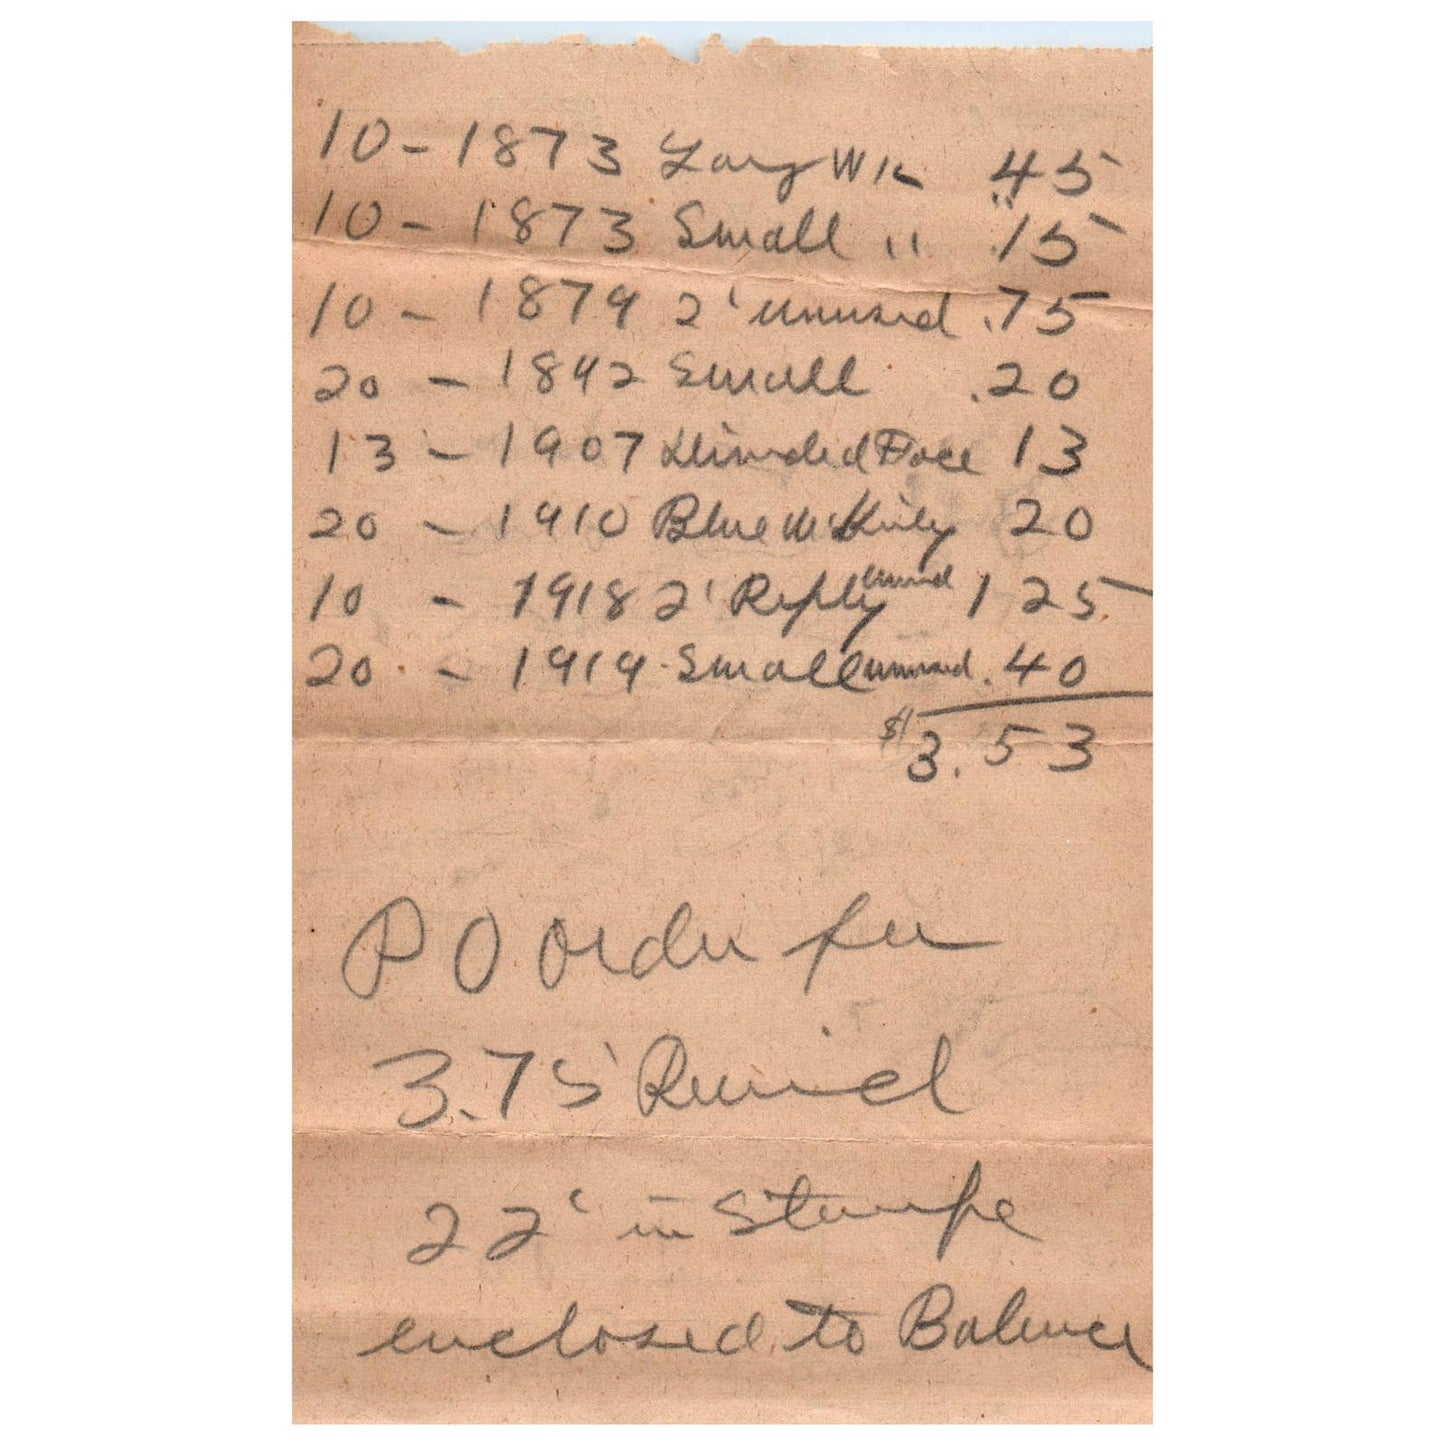 10 - 1873 Larg Wk .45
10 - 1873 Small " .15
10 - 1879 2' unused .75
20 - 1892 Small .20
13 - 1907 Face 13
20 - 1910 Blue McKinley 20
10 - 1918 2' Reply unused 1 25
20 - 1919 Small unused .40
$ 3.53
P O Order for
3.75 Received
22' in Stamps
enclosed to Balance